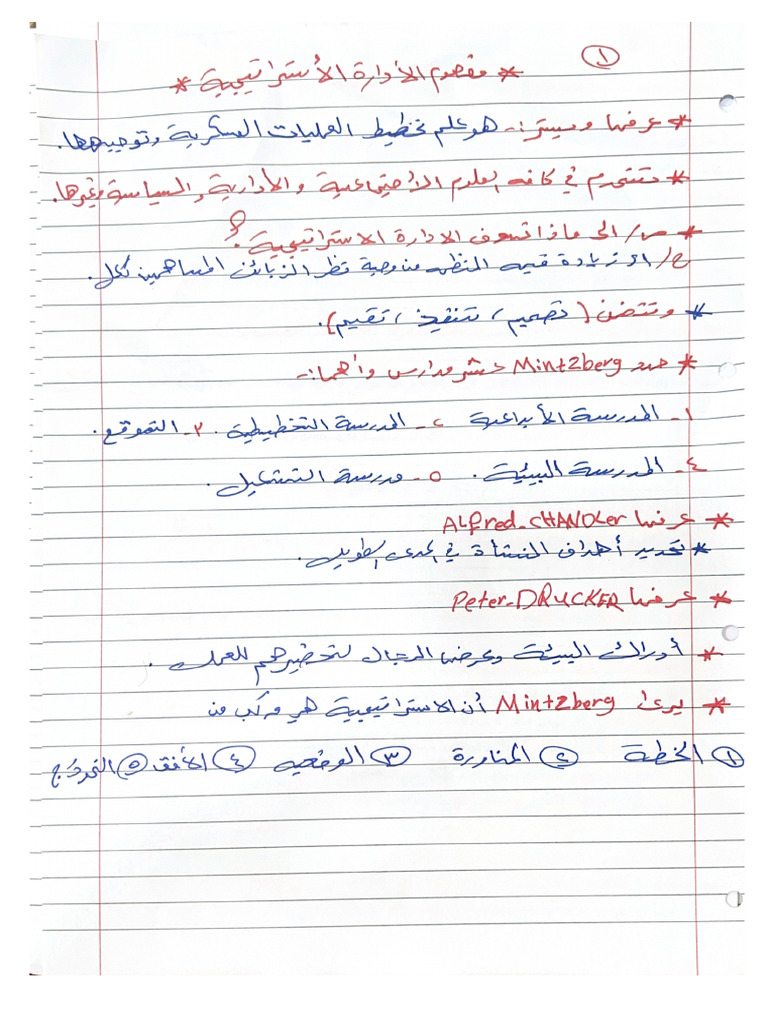 ١
* مفهوم الأدارة الأستراتيجية *
* عرفها وبستر :- هو علم تخطيط العمليات العسكرية وتوجيهها.
* تستخدم في كافه العلوم الأجتماعية والأدارية والسياسة وغيرها.
* س/ الى ماذا تهدف الادارة الاستراتيجية ؟
ج/ الا زيادة قيمه المنظمه من وجهة نظر الزبائن المساهمين ككل.
* وتتضن (تصميم، تنفيذ، تقييم).
* حدد Mintzberg عشر مدارس وأهما :-
١- المدرسة الأبداعية ٢- المدرسة التخطيطية. ٣- التموقع.
٤- المدرسة البيئية. ٥- مدرسة التشكيل.
* عرفها ALfred-CHANDLer
* تحديد أهداف المنشأة في المدى الطويل.
* عرفها Peter-DRUCKER
* أوراك البيئة وعرضها المجال لتحضيرهم للعمل.
* يرى Mintzberg أن الاستراتيجية هي مركب من
١ الخطة ٢ المناورة ٣ الوضعيه ٤ الأفق ٥ النموذج